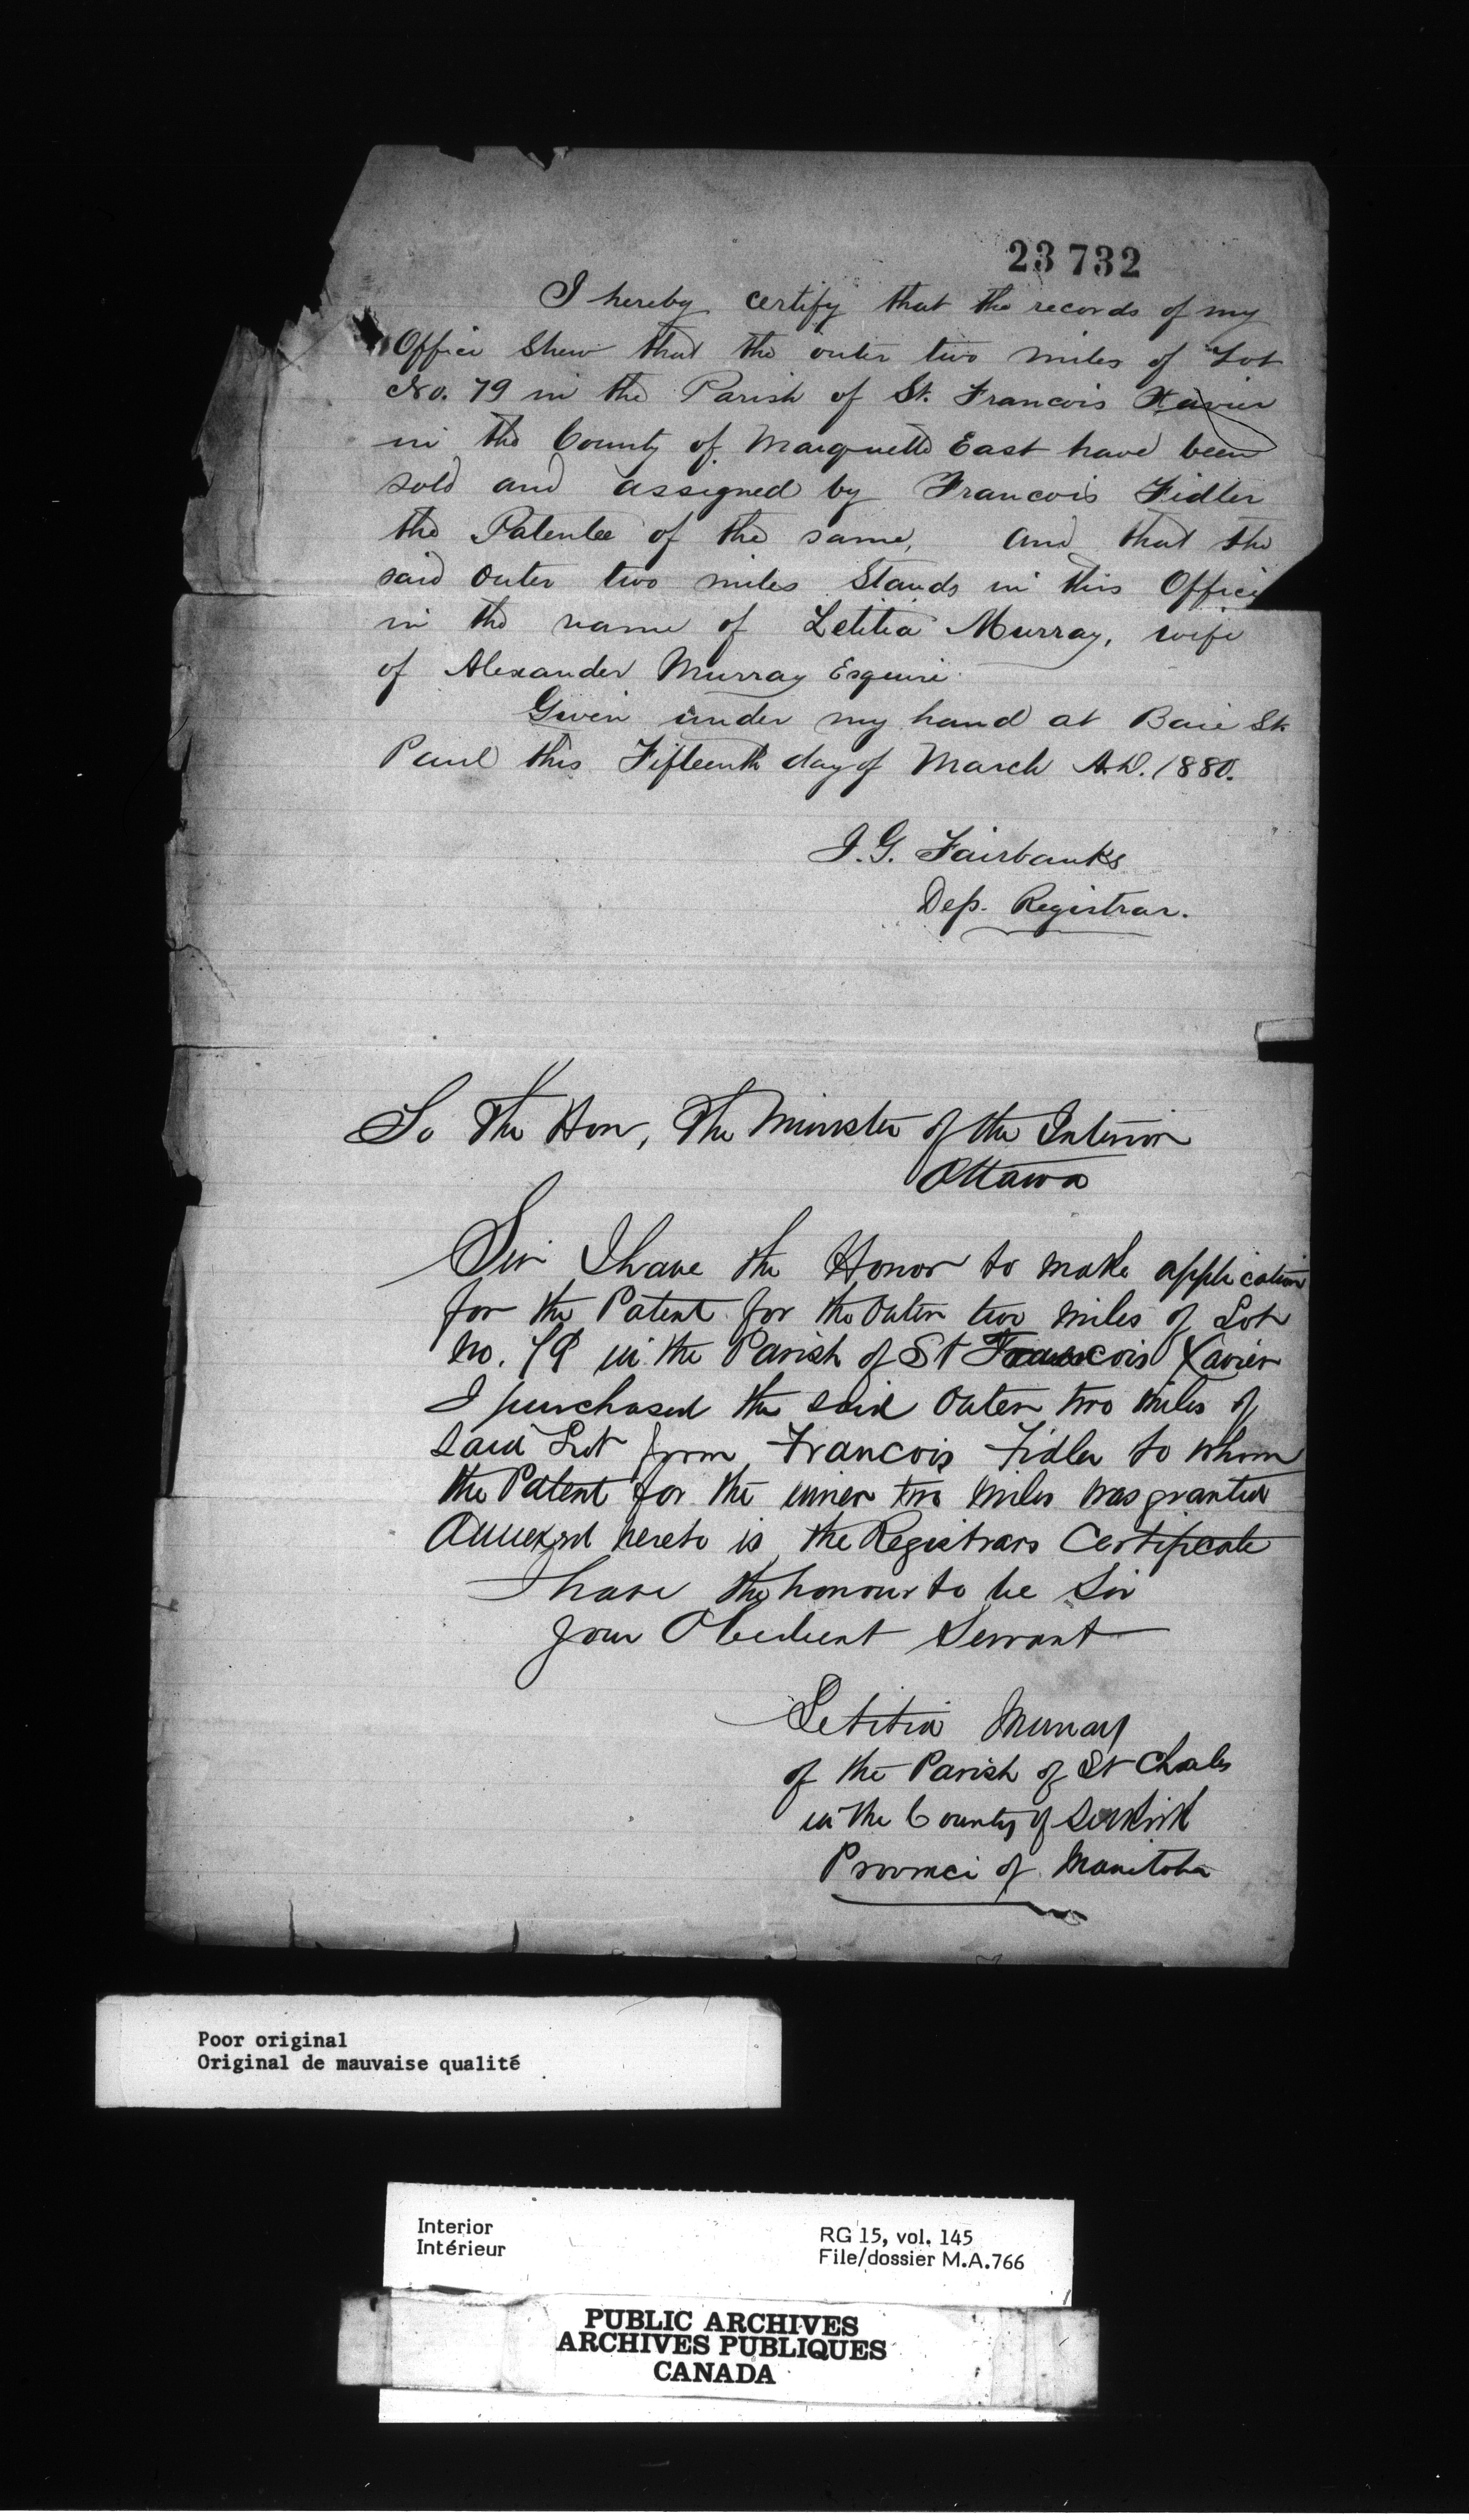 23732
I hereby certify that the records of my
Office Shew that the outer two miles of Lot
No. 79 in the Parish of St. Francois Xavier
in the County of Marquette East have been
sold and assigned by Francois Fidler
the Patentee of the same, and that the
said Outer two miles Stands in this Office
in the name of Letitia Murray, wife
of Alexander Murray Esquire
Given under my hand at Baie St.
Paul this Fifteenth day of March A.D. 1880.
J. G. Fairbanks
Dep. Registrar.
To The Hon, The Minister of the Interior
Ottawa
Sir I have the Honor to make application
for the Patent for the Outer two miles of Lot
No. 79 in the Parish of St Francois Xavier
I purchased the said Outer two miles of
said Lot from Francois Fidler to whom
the Patent for the inner two miles was granted
Annexed hereto is the Registrars Certificate
I have the honour to be Sir
Your Obedient Servant
Letitia Murray
of the Parish of St Charles
in the County of Selkirk
Province of Manitoba
Poor original
Original de mauvaise qualité
Interior
Intérieur
RG 15, vol. 145
File/dossier M.A.766
PUBLIC ARCHIVES
ARCHIVES PUBLIQUES
CANADA